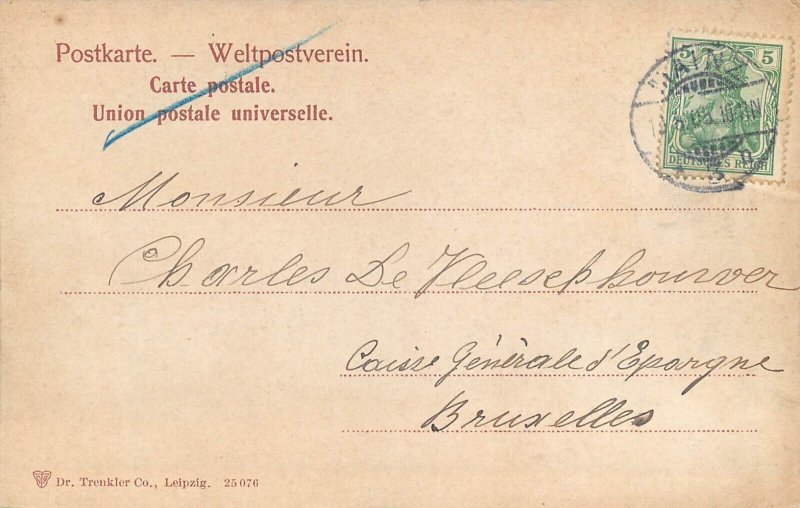 Postkarte. — Weltpostverein.
Carte postale.
Union postale universelle.
5 5
DEUTSCHES REICH
Monsieur
Charles De Vleeschhouwer
Caisse Générale d'Epargne
Bruxelles
Dr. Trenkler Co., Leipzig. 25 076